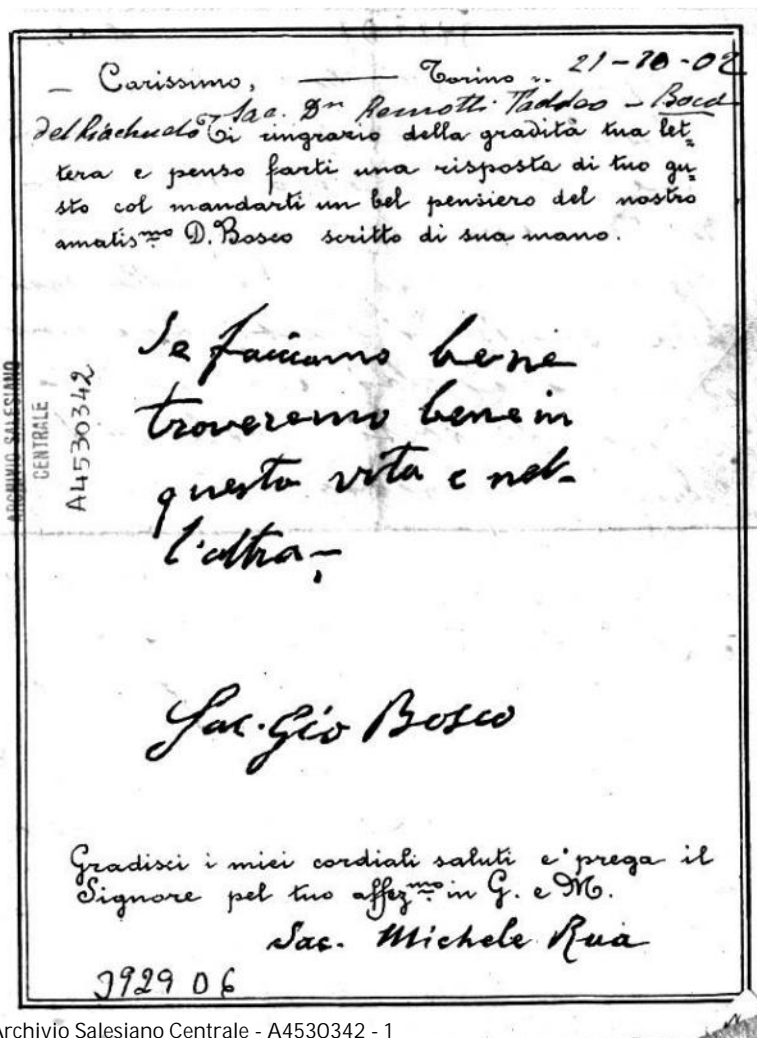 Carissimo, — Torino .. 21-10-02
Sac. Dn Remotti Taddeo - Boca
del Riachuelo Ti ringrazio della gradita tua let=
tera e penso farti una risposta di tuo gu=
sto col mandarti un bel pensiero del nostro
amatis.mo D. Bosco scritto di sua mano.
Se facciamo bene
troveremo bene in
questa vita e nel-
l'altra-
Sac. Gio Bosco
Gradisci i miei cordiali saluti e prega il
Signore pel tuo affez.mo in G. e M.
Sac. Michele Rua
3929 D 6
ARCHIVIO SALESIANO
CENTRALE
A4530342
Archivio Salesiano Centrale - A4530342 - 1